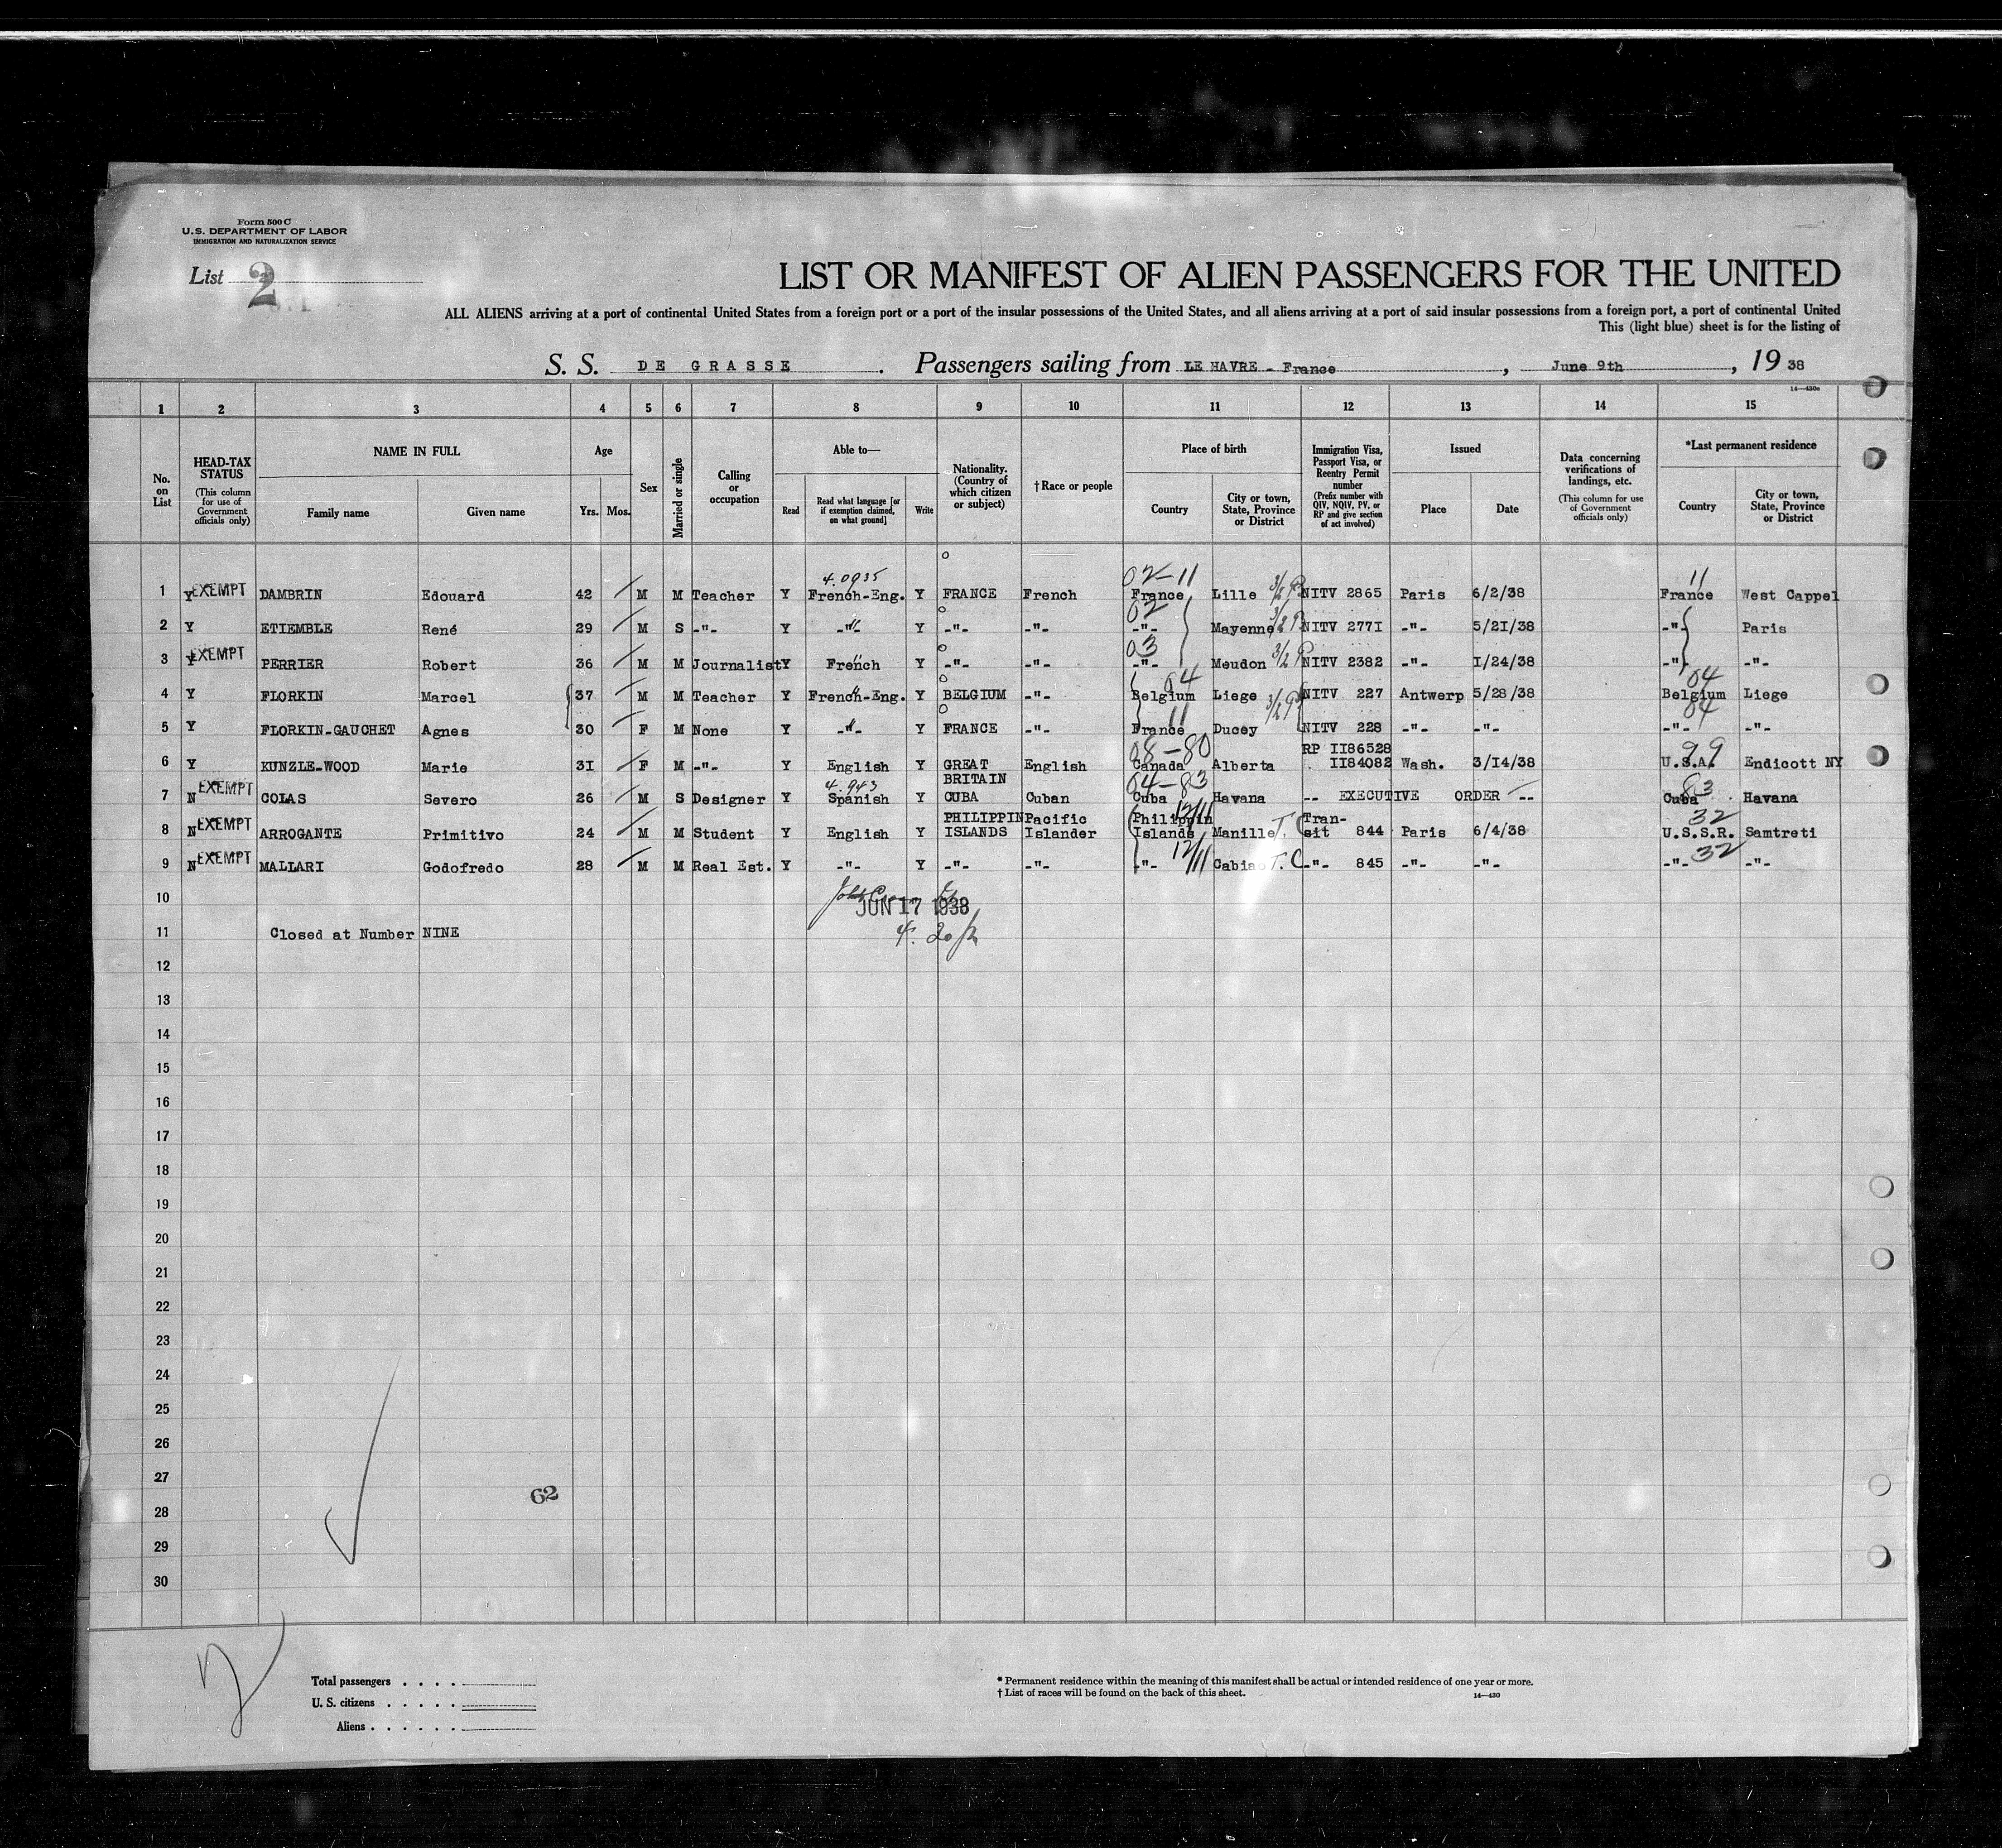 Form 500 C
U.S. DEPARTMENT OF LABOR
IMMIGRATION AND NATURALIZATION SERVICE
List 2
LIST OR MANIFEST OF ALIEN PASSENGERS FOR THE UNITED
ALL ALIENS arriving at a port of continental United States from a foreign port or a port of the insular possessions of the United States, and all aliens arriving at a port of said insular possessions from a foreign port, a port of continental United
This (light blue) sheet is for the listing of
S. S. DE GRASSE. Passengers sailing from LE HAVRE - France, June 9th, 19 38
14—430c
1 2 3 4 5 6 7 8 9 10 11 12 13 14 15
No. on List
HEAD-TAX STATUS (This column for use of Government officials only)
NAME IN FULL
Family name Given name
Age
Yrs. Mos.
Sex
Married or single
Calling or occupation
Able to—
Read
Read what language [or if exemption claimed, on what ground]
Write
Nationality. (Country of which citizen or subject)
† Race or people
Place of birth
Country
City or town, State, Province or District
Immigration Visa, Passport Visa, or Reentry Permit number (Prefix number with QIV, NQIV, PV, or RP and give section of act involved)
Issued
Place Date
Data concerning verifications of landings, etc. (This column for use of Government officials only)
*Last permanent residence
Country
City or town, State, Province or District
4.0935 02-11 11
1 Y EXEMPT DAMBRIN Edouard 42 M M Teacher Y French-Eng. Y FRANCE French France Lille NITV 2865 Paris 6/2/38 France West Cappel
02
2 Y ETIEMBLE René 29 M S -"- Y -"- Y -"- -"- -"- Mayenne NITV 277I -"- 5/2I/38 -"- Paris
03
3 Y EXEMPT PERRIER Robert 36 M M Journalist Y French Y -"- -"- -"- Meudon NITV 2382 -"- I/24/38 -"- -"-
04 04
4 Y FLORKIN Marcel 37 M M Teacher Y French-Eng. Y BELGIUM -"- Belgium Liege NITV 227 Antwerp 5/28/38 Belgium Liege
11 04
5 Y FLORKIN-GAUCHET Agnes 30 F M None Y -"- Y FRANCE -"- France Ducey NITV 228 -"- -"- -"- -"-
08-80 RP II86528 99
6 Y KUNZLE-WOOD Marie 3I F M -"- Y English Y GREAT BRITAIN English Canada Alberta II84082 Wash. 3/14/38 U.S.A. Endicott NY
4.943 04-83 83
7 N EXEMPT COLAS Severo 26 M S Designer Y Spanish Y CUBA Cuban Cuba Havana -- EXECUTIVE ORDER -- Cuba Havana
12/11 32
8 N EXEMPT ARROGANTE Primitivo 24 M M Student Y English Y PHILIPPIN ISLANDS Pacific Islander Philippin Islands Manille T.C Transit 844 Paris 6/4/38 U.S.S.R. Samtreti
12/11 32
9 N EXEMPT MALLARI Godofredo 28 M M Real Est. Y -"- Y -"- -"- -"- Cabiao T.C -"- 845 -"- -"- -"- -"-
10
JUN 17 1938
11 Closed at Number NINE
12
13
14
15
16
17
18
19
20
21
22
23
24
25
26
27
62
28
29
30
2
Total passengers
U. S. citizens
Aliens
* Permanent residence within the meaning of this manifest shall be actual or intended residence of one year or more.
† List of races will be found on the back of this sheet.
14—430